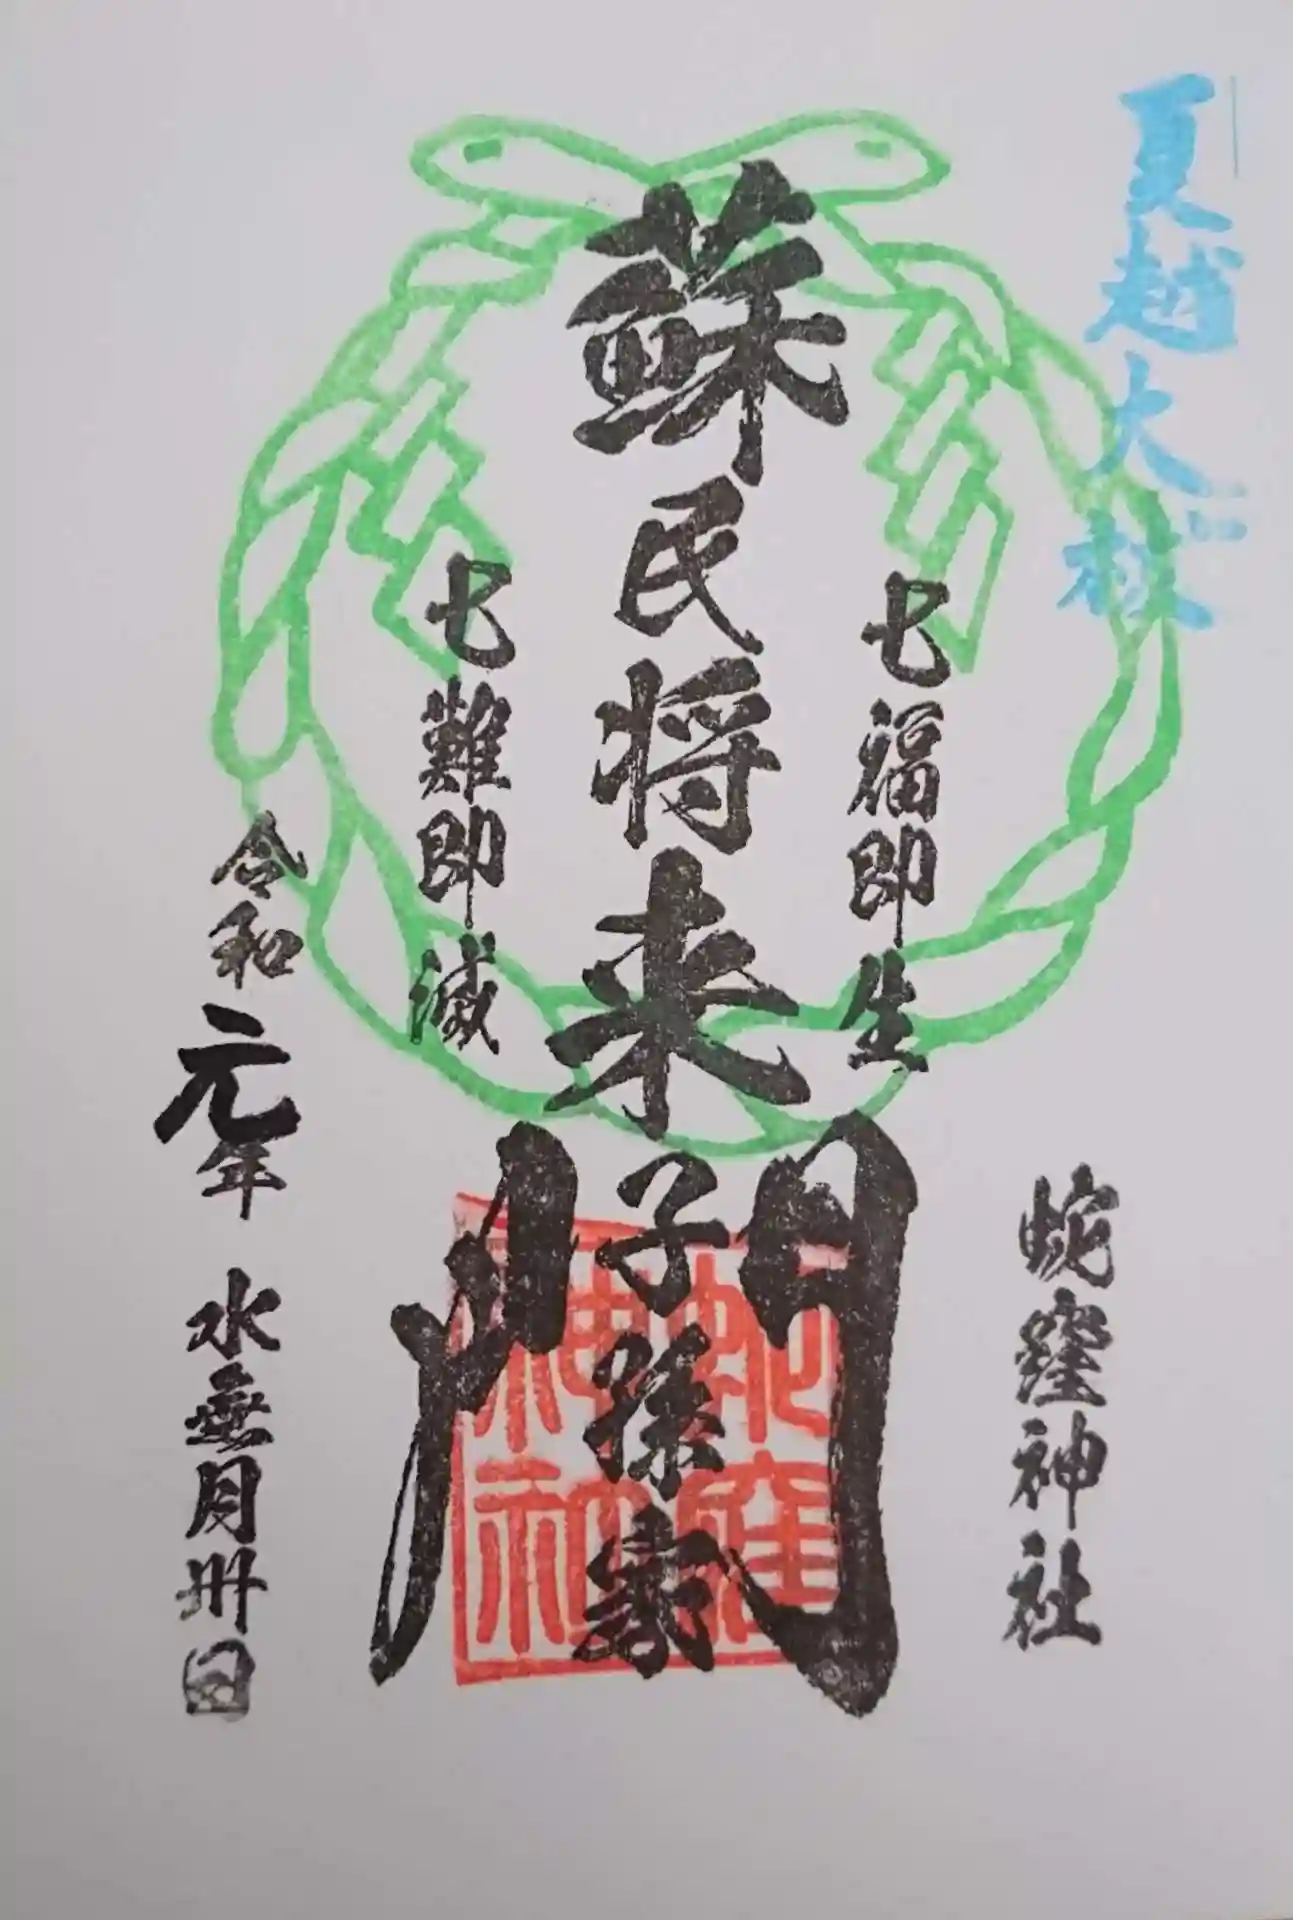 夏越大祓
蛇窪神社
七福即生
蘇民将来子孫家門
七難即滅
令和元年 水無月卅日
蛇窪神社